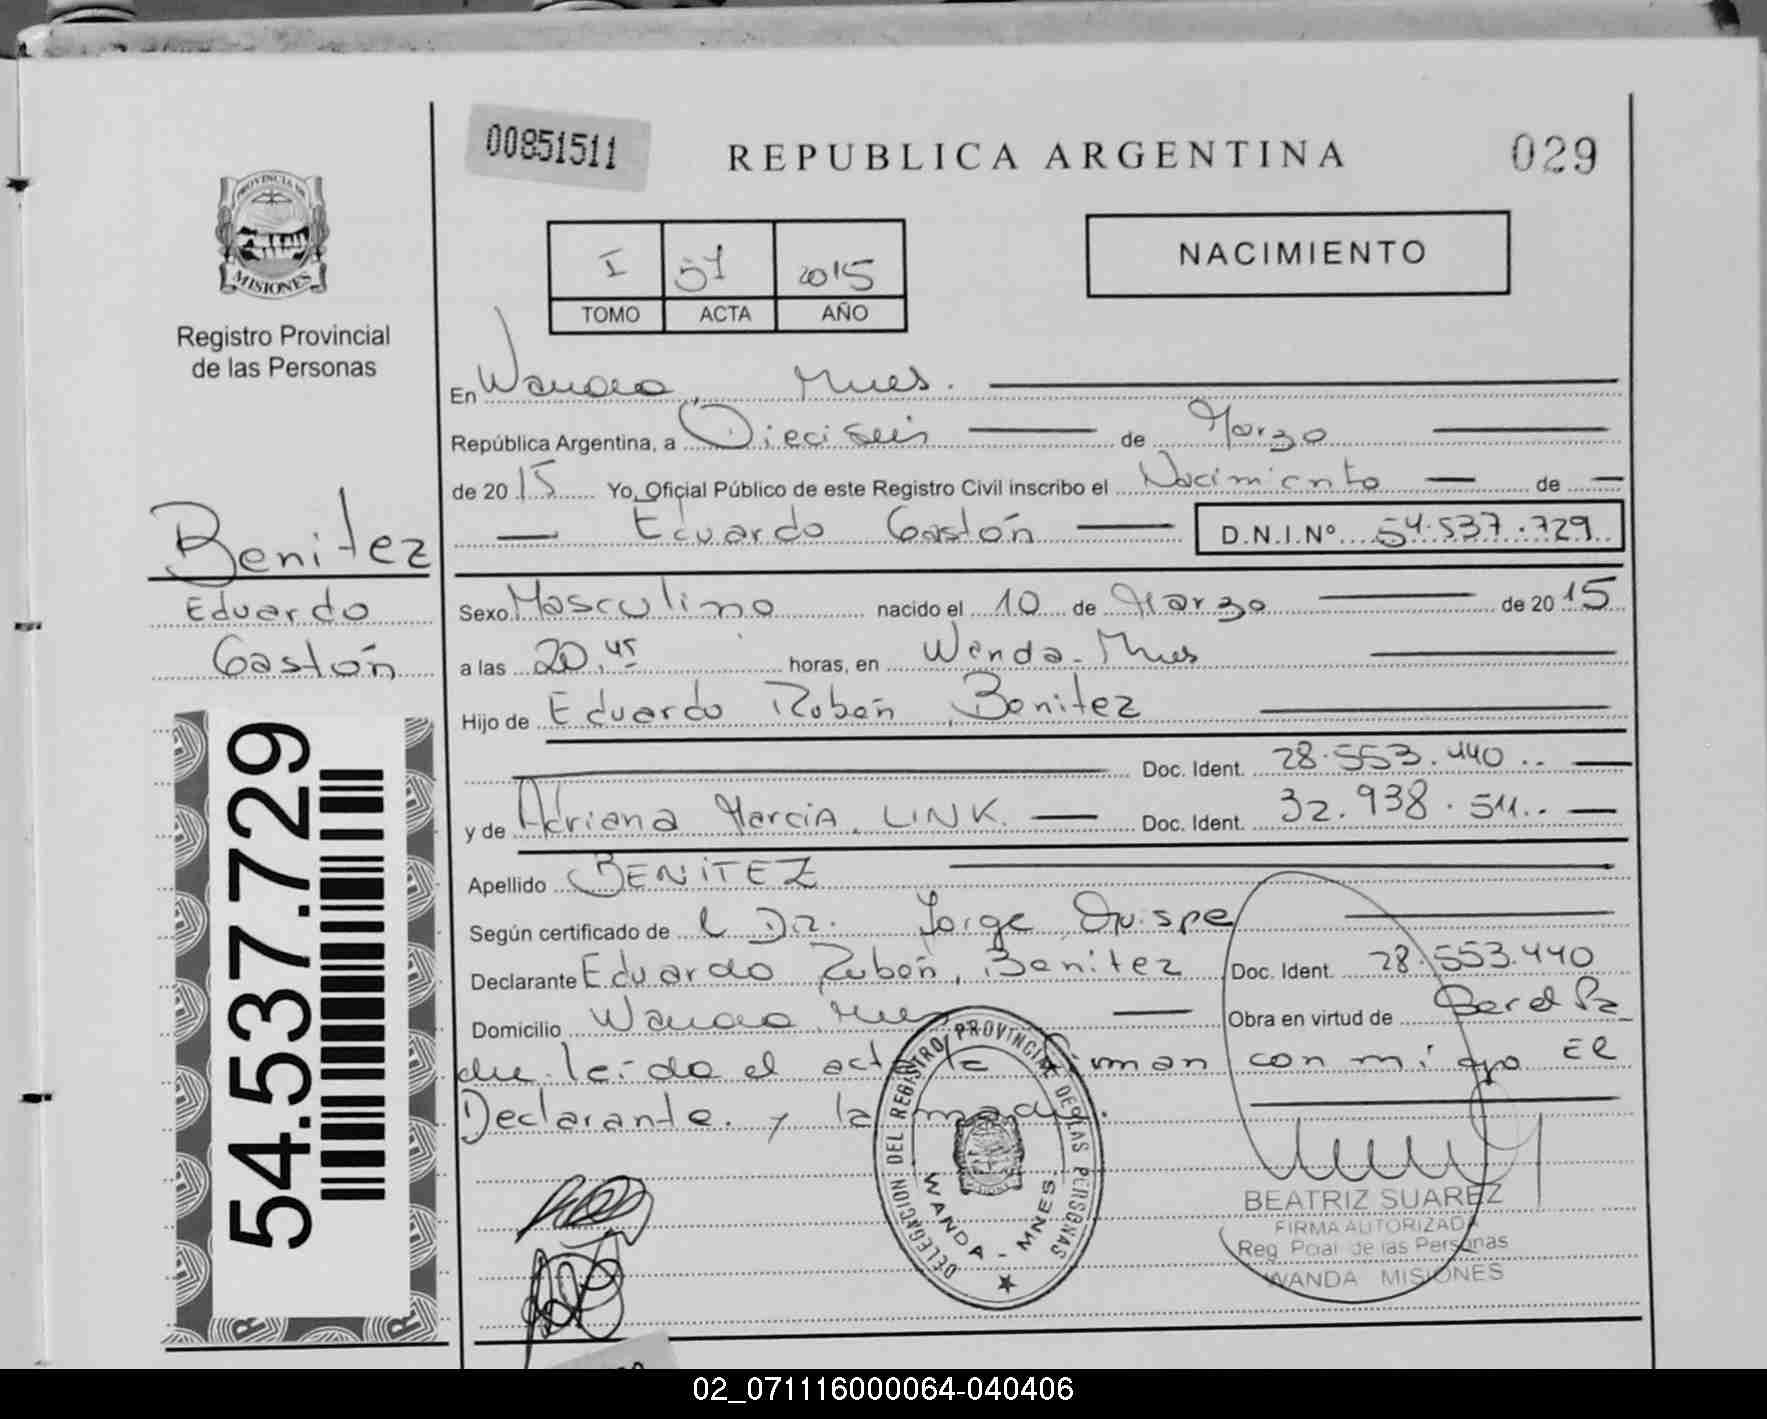 00851511
REPUBLICA ARGENTINA
029
PROVINCIA DE
MISIONES
Registro Provincial
de las Personas
I 51 2015
TOMO ACTA AÑO
NACIMIENTO
En Wanda, Mnes.
República Argentina, a Dieciseis de Marzo
de 2015 Yo, Oficial Público de este Registro Civil inscribo el Nacimiento de
Eduardo Gastón D.N.I.Nº 54.537.729
Benitez
Eduardo
Gastón
54.537.729
Sexo Masculino nacido el 10 de Marzo de 2015
a las 20,45 horas, en Wanda - Mnes
Hijo de Eduardo Rubén, Benitez
Doc. Ident. 28.553.440
y de Adriana Marcia, LINK. Doc. Ident. 32.938.511
Apellido BENITEZ
Según certificado de l Dr. Jorge Quispe
Declarante Eduardo Rubén, Benitez Doc. Ident. 28.553.440
Domicilio Wanda, Mnes Obra en virtud de Ser el Pa
dre. leída el acta la firman conmigo El
Declarante. y la madre.
DELEGACION DEL REGISTRO PROVINCIAL DE LAS PERSONAS
WANDA - MNES
BEATRIZ SUAREZ
FIRMA AUTORIZADA
Reg. Pcial de las Personas
WANDA MISIONES
02_071116000064-040406